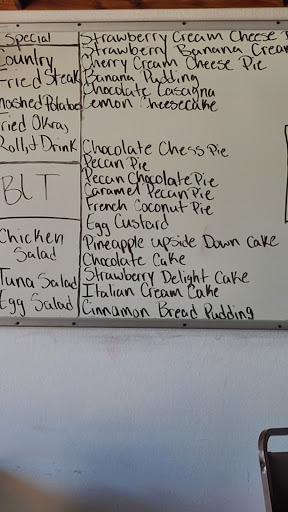 Special
Country
Fried Steak
Mashed Potatoes
Fried Okra,
Roll, & Drink
BLT
Chicken
Salad
Tuna Salad
Egg Salad
Strawberry Cream Cheese
Strawberry Banana Cream
Cherry Cream Cheese Pie
Banana Pudding
Chocolate Lasagna
Lemon Cheesecake
Chocolate Chess Pie
Pecan Pie
Pecan Chocolate Pie
Caramel Pecan Pie
French Coconut Pie
Egg Custard
Pineapple upside Down Cake
Chocolate Cake
Strawberry Delight Cake
Italian Cream Cake
Cinnamon Bread Pudding